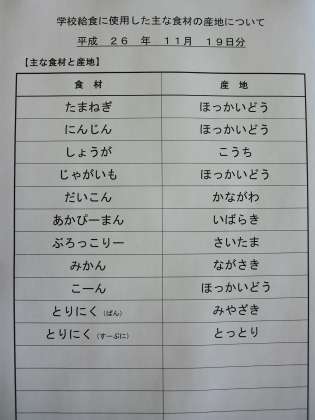 学校給食に使用した主な食材の産地について
平成　２６　年　１１月　１９日分
【主な食材と産地】
食　材　産　地
たまねぎ　ほっかいどう
にんじん　ほっかいどう
しょうが　こうち
じゃがいも　ほっかいどう
だいこん　かながわ
あかぴーまん　いばらき
ぶろっこりー　さいたま
みかん　ながさき
こーん　ほっかいどう
とりにく（ぱん）　みやざき
とりにく（すーぷに）　とっとり